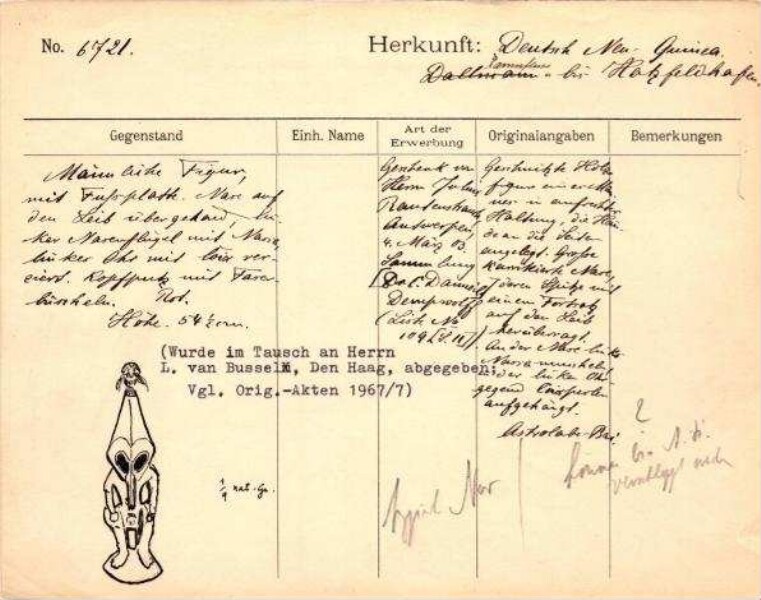 No. 6721.
Herkunft: Deutsch Neu-Guinea.
Dallmann- bis Hatzfeldhafen.
Gegenstand
Einh. Name
Art der Erwerbung
Originalangaben
Bemerkungen
Männliche Figur,
mit Fussplatte. Nase auf
den Leib übergehend, lin-
ker Nasenflügel mit Nassa,
linker Ohr mit Coix ver-
ziert. Kopfputz mit Faser-
büscheln. Rot.
Höhe. 54½ cm.
Geschenk von
Herrn Julius
Rautenstrauch,
Antwerpen,
4. März 03.
Sammlung
Dempwolff
(Liste No
Geschnitzte Holz-
figur eines Män-
nes in aufrechter
Haltung, die Hän-
de an die Seiten
angelegt. Große
karrikierte Nase,
deren Spitze mit
einem Fortsatz
auf den Leib
herüberragt.
An der Nase links
Nassamuscheln,
der linken Ohr-
gegend Coixperlen
aufgehängt.
Astrolabe-Bai.
(Wurde im Tausch an Herrn
L. van Bussel, Den Haag, abgegeben;
Vgl. Orig.-Akten 1967/7)
?